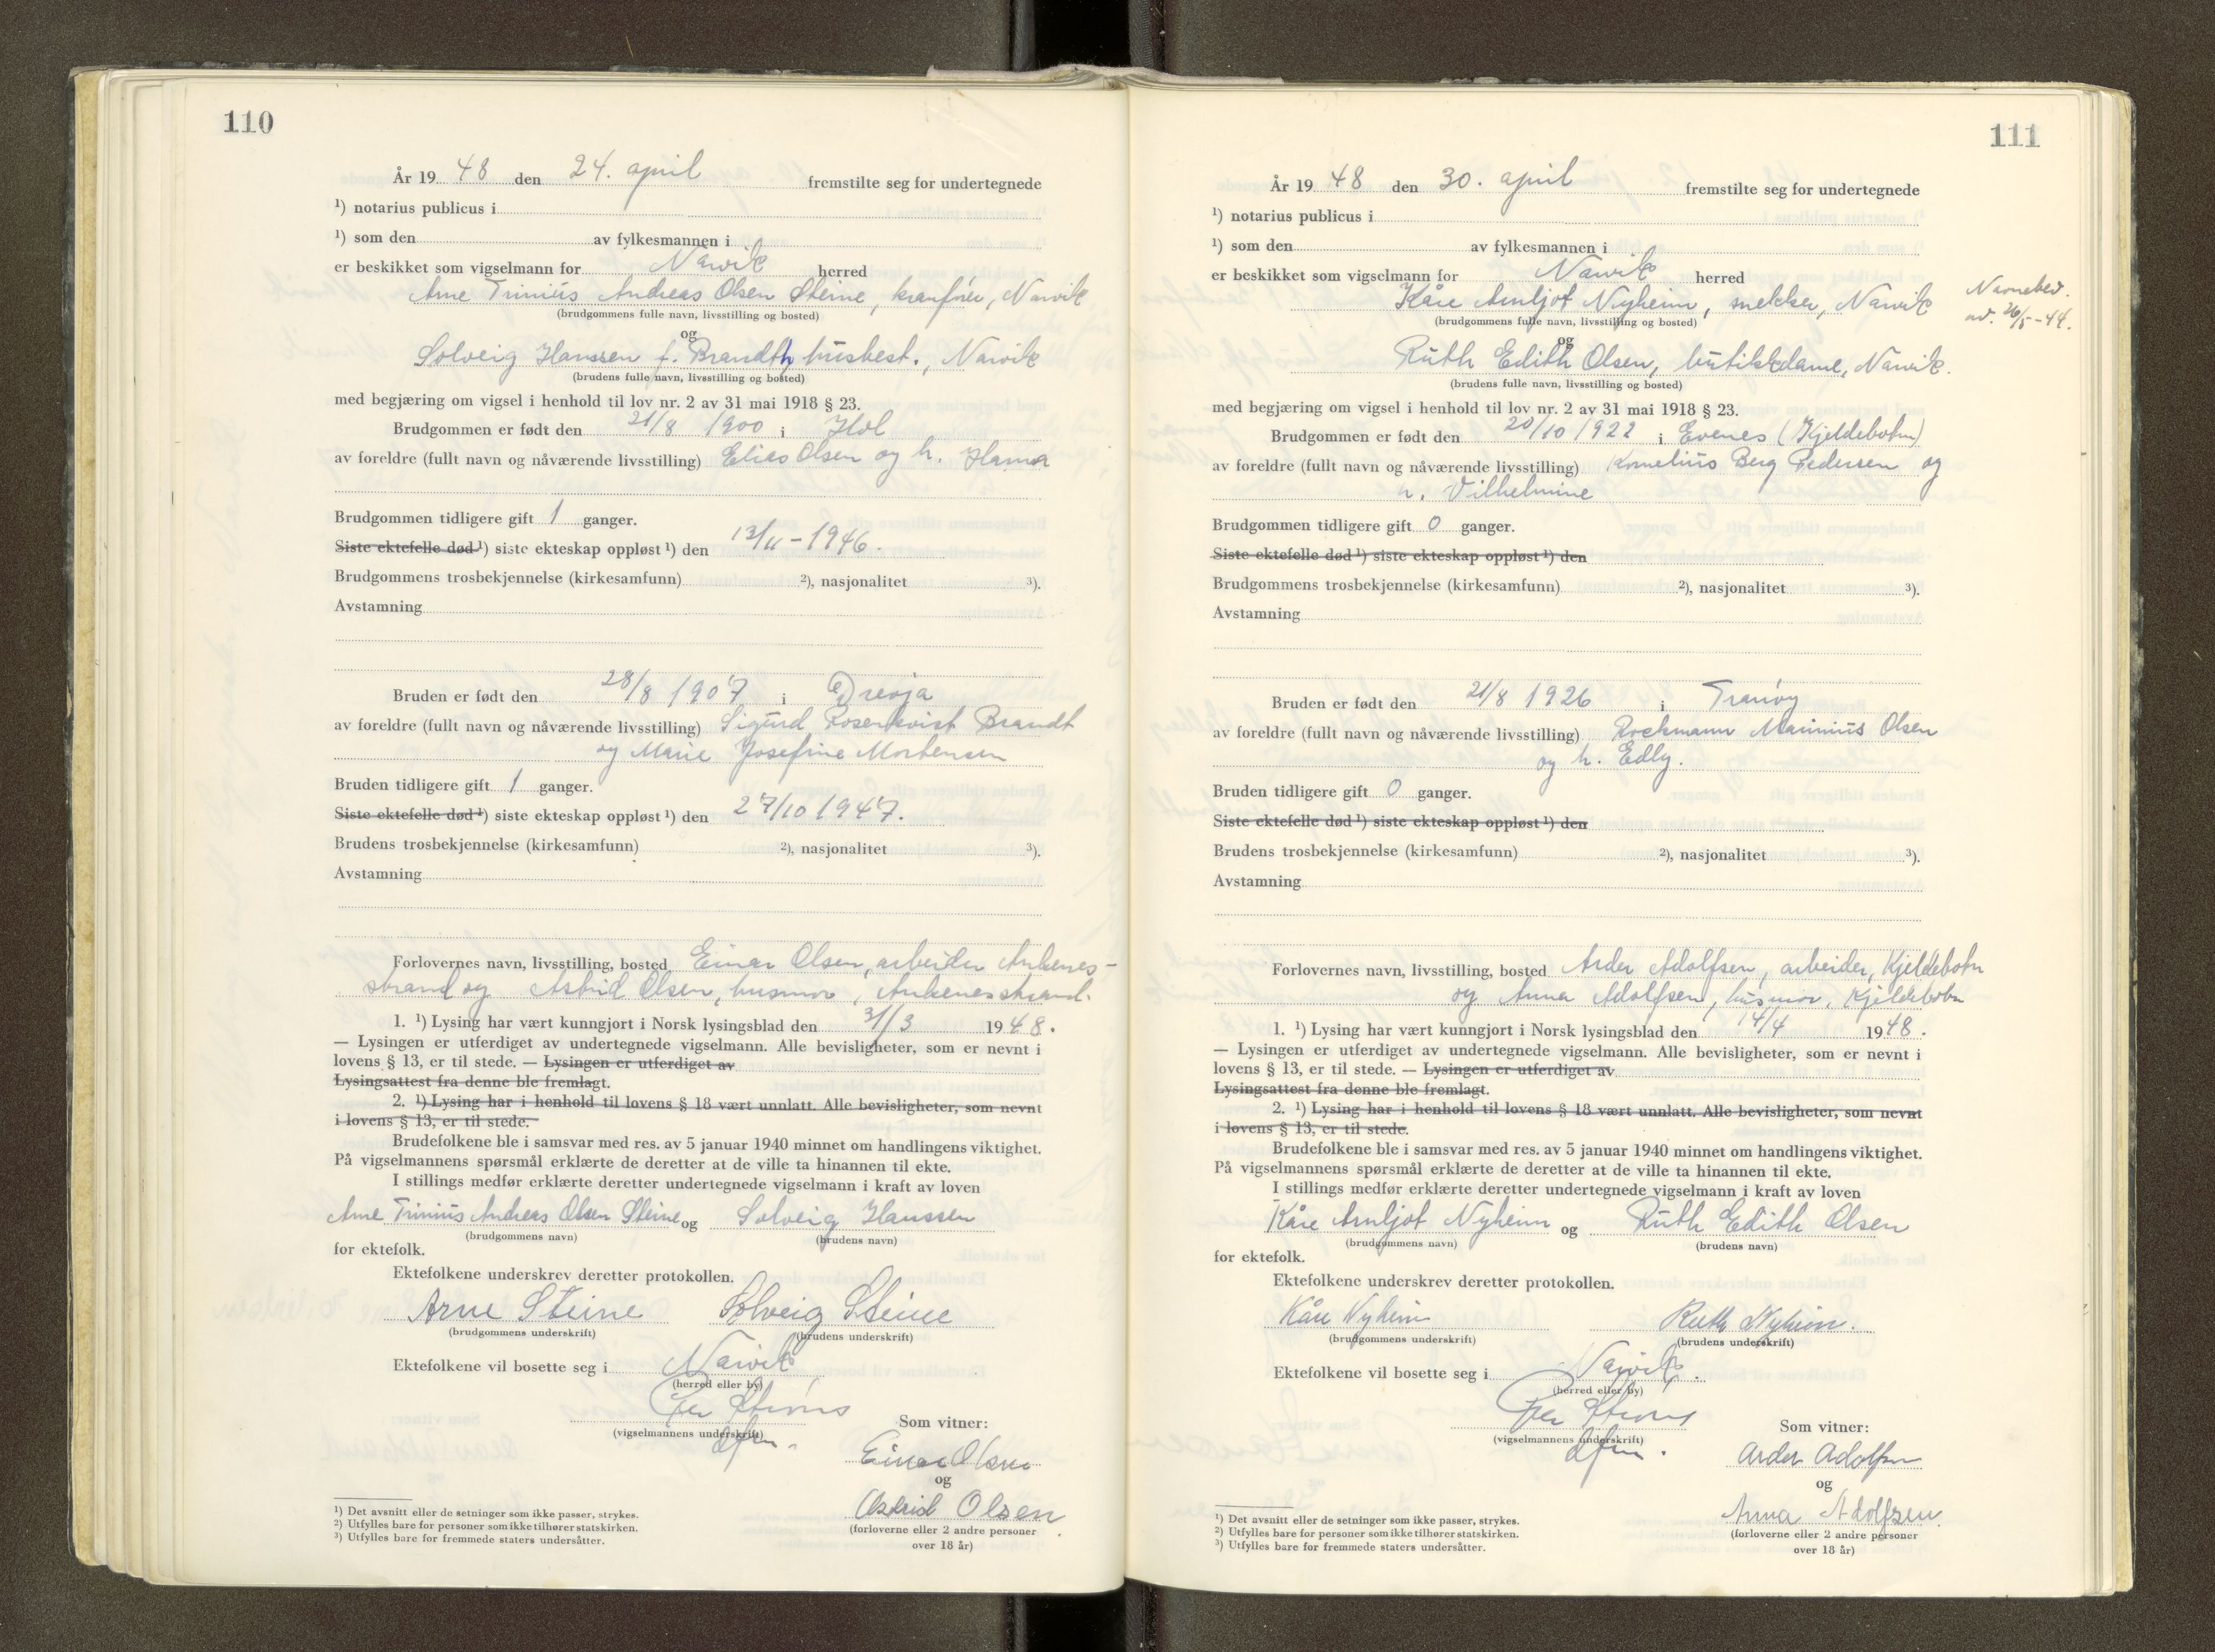 110
År 19 48 den 24. april fremstilte seg for undertegnede
¹) notarius publicus i
¹) som den av fylkesmannen i
er beskikket som vigselmann for Narvik herred
Arne Trinius Andreas Olsen Steine, kranfører, Narvik
(brudgommens fulle navn, livsstilling og bosted)
og
Solveig Hanssen f. Brandth husbest., Narvik
(brudens fulle navn, livsstilling og bosted)
med begjæring om vigsel i henhold til lov nr. 2 av 31 mai 1918 § 23.
Brudgommen er født den 21/8 1900 i Hol
av foreldre (fullt navn og nåværende livsstilling) Elias Olsen og h. Hanna
Brudgommen tidligere gift 1 ganger.
Siste ektefelle død ¹) siste ekteskap oppløst ¹) den 13/11 - 1946.
Brudgommens trosbekjennelse (kirkesamfunn) ²), nasjonalitet ³).
Avstamning
Bruden er født den 28/8 1907 i Drevja
av foreldre (fullt navn og nåværende livsstilling) Sigurd Rosenkvist Brandt
og Marie Josefine Mortensen
Bruden tidligere gift 1 ganger.
Siste ektefelle død ¹) siste ekteskap oppløst ¹) den 27/10 1947.
Brudens trosbekjennelse (kirkesamfunn) ²), nasjonalitet ³).
Avstamning
Forlovernes navn, livsstilling, bosted Einar Olsen, arbeider Ankenes-
strand og Astrid Olsen, husmor, Ankenesstrand.
1. ¹) Lysing har vært kunngjort i Norsk lysingsblad den 31/3 1948.
— Lysingen er utferdiget av undertegnede vigselmann. Alle bevisligheter, som er nevnt i
lovens § 13, er til stede. — Lysingen er utferdiget av
Lysingsattest fra denne ble fremlagt.
2. ¹) Lysing har i henhold til lovens § 18 vært unnlatt. Alle bevisligheter, som nevnt
i lovens § 13, er til stede.
Brudefolkene ble i samsvar med res. av 5 januar 1940 minnet om handlingens viktighet.
På vigselmannens spørsmål erklærte de deretter at de ville ta hinannen til ekte.
I stillings medfør erklærte deretter undertegnede vigselmann i kraft av loven
Arne Trinius Andreas Olsen Steine og Solveig Hanssen
(brudgommens navn) (brudens navn)
for ektefolk.
Ektefolkene underskrev deretter protokollen.
Arne Steine Solveig Steine
(brudgommens underskrift) (brudens underskrift)
Ektefolkene vil bosette seg i Narvik
(herred eller by)
Som vitner:
(vigselmannens underskrift)
Einar Olsen
og
Astrid Olsen
(forloverne eller 2 andre personer
over 18 år)
¹) Det avsnitt eller de setninger som ikke passer, strykes.
²) Utfylles bare for personer som ikke tilhører statskirken.
³) Utfylles bare for fremmede staters undersåtter.
111
År 19 48 den 30. april fremstilte seg for undertegnede
¹) notarius publicus i
¹) som den av fylkesmannen i
er beskikket som vigselmann for Narvik herred
Kåre Arnljot Nyheim, snekker, Narvik
Navnebev.
av. 26/5-44.
(brudgommens fulle navn, livsstilling og bosted)
og
Ruth Edith Olsen, butikkdame, Narvik.
(brudens fulle navn, livsstilling og bosted)
med begjæring om vigsel i henhold til lov nr. 2 av 31 mai 1918 § 23.
Brudgommen er født den 20/10 1922 i Evenes (Kjeldebotn)
av foreldre (fullt navn og nåværende livsstilling) Kornelius Berg Pedersen og
h. Vilhelmine
Brudgommen tidligere gift 0 ganger.
Siste ektefelle død ¹) siste ekteskap oppløst ¹) den
Brudgommens trosbekjennelse (kirkesamfunn) ²), nasjonalitet ³).
Avstamning
Bruden er født den 21/8 1926 i Tranøy
av foreldre (fullt navn og nåværende livsstilling) Rockmann Marinius Olsen
og h. Edly.
Bruden tidligere gift 0 ganger.
Siste ektefelle død ¹) siste ekteskap oppløst ¹) den
Brudens trosbekjennelse (kirkesamfunn) ²), nasjonalitet ³).
Avstamning
Forlovernes navn, livsstilling, bosted Arder Adolfsen, arbeider, Kjeldebotn
og Anna Adolfsen, husmor, Kjeldebotn
1. ¹) Lysing har vært kunngjort i Norsk lysingsblad den 14/4 1948.
— Lysingen er utferdiget av undertegnede vigselmann. Alle bevisligheter, som er nevnt i
lovens § 13, er til stede. — Lysingen er utferdiget av
Lysingsattest fra denne ble fremlagt.
2. ¹) Lysing har i henhold til lovens § 18 vært unnlatt. Alle bevisligheter, som nevnt
i lovens § 13, er til stede.
Brudefolkene ble i samsvar med res. av 5 januar 1940 minnet om handlingens viktighet.
På vigselmannens spørsmål erklærte de deretter at de ville ta hinannen til ekte.
I stillings medfør erklærte deretter undertegnede vigselmann i kraft av loven
Kåre Arnljot Nyheim og Ruth Edith Olsen
(brudgommens navn) (brudens navn)
for ektefolk.
Ektefolkene underskrev deretter protokollen.
Kåre Nyheim Ruth Nyheim.
(brudgommens underskrift) (brudens underskrift)
Ektefolkene vil bosette seg i Narvik.
(herred eller by)
Som vitner:
(vigselmannens underskrift)
Arder Adolfsen
og
Anna Adolfsen
(forloverne eller 2 andre personer
over 18 år)
¹) Det avsnitt eller de setninger som ikke passer, strykes.
²) Utfylles bare for personer som ikke tilhører statskirken.
³) Utfylles bare for fremmede staters undersåtter.